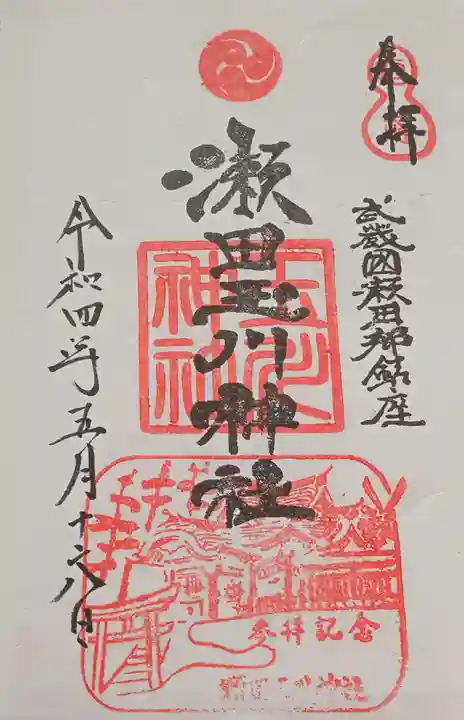 奉拝
武蔵國瀬田郷鎮座
瀬田玉川神社
玉川神社
令和四年五月十六日
参拝記念
瀬田玉川神社